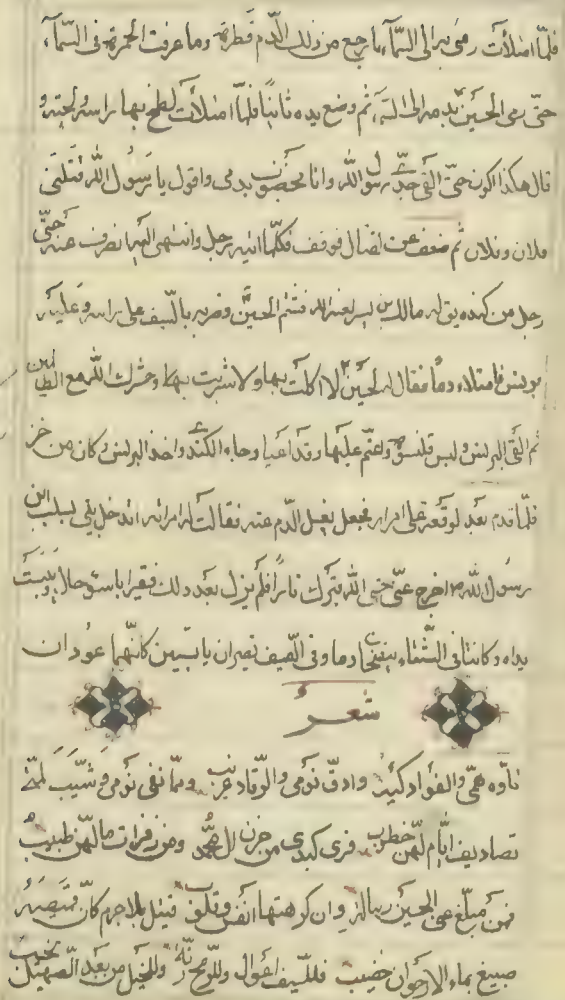 فلمّا امتلأت رمى به الى السّمآء ما رجع من ذلك الدّم قطرة وما عرفت الحمرة فى السّمآء
حتّى رمى الحسين بدمه الى السمآء ثم وضع يده ثانيا فلمّا امتلأت لطخ بها راسه ولحيته و
قال هكذا اكون حتى القى جدّى رسول الله وانا مخضوب بدمى واقول يا رسول الله قتلنى
فلان وفلان ثم ضعف عن القتال فوقف فكلّما اتيه رجل وانتهى اليه انصرف عنه حتّى
رجل من كنده يق له مالك بن اليسر لعنه الله فشتم الحسين وضربه بالسّيف على راسه وعليه
برنس فامتلاء دمًا فقال له الحسين لا اكلت بها ولا شربت بها وحشرك الله مع الظالمين
ثم القى البرنس ولبس قلنسوة واعتمّ عليها وقد اعيا وجاء الكندى واخذ البرنس وكان من خز
فلمّا قدم بعد الوقعة على امراته فجعل يغسل الدّم عنه فقالت له امراته اتدخل بيتى بسلب ابن
رسول الله ص اخرج عنّى حشى الله قبرك نارًا فلم يزل بعد ذلك فقيرا باسوء حال ويبست
يداه وكانتا فى الشّتاء ينضحان دما وفى الصّيف تصيران يابستين كانّهما عودان
شعر
تاوّه همّى والفؤاد كئيب وارّق نومى والرّقاد غريب وممّا نفى نومى وشيّب لمّتى
تصاريف ايّام لهنّ خطوب فرى كبدى من حزن ال محمّد ومن زفرات ما لهنّ طبيب
فمن مبلّغ عنى الحسين رسالة وان كرهتها انفس وقلوب قتيل بلا جرم كانّ قميصه
صبيغ بماء الارجوان خضيب فللسّيف اعوال وللرّمح رنّة وللخيل من بعد الصّهيل نحيب